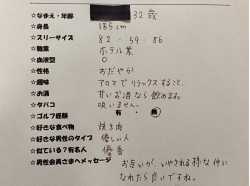 ☆なまえ・年齢 32歳
☆身長 155cm
☆スリーサイズ 82.59.86
☆職業 ホテル業
☆血液型 O
☆性格 おだやか
☆趣味 アロマでリラックスすること
☆お酒 甘いお酒なら飲めます。
☆タバコ 吸いません。
☆ゴルフ経験 有・無
☆好きな食べ物 焼き肉
☆好きな男性のタイプ 優しい人
☆似ている?有名人 優香
☆男性会員さまへメッセージ お互いが、いやされる様な仲に
なれたら良いですね。